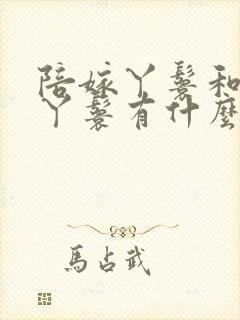 陪嫁丫鬟和
丫鬟有什麼
馬占武